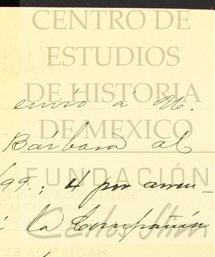 CENTRO DE
ESTUDIOS
DE HISTORIA
envió á
DE MEXICO
Bárbara al
FUNDACIÓN
99.; 4 por
la Compañía
Carlos Slim